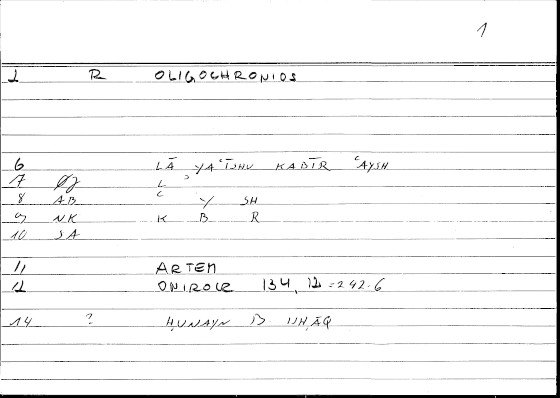 1
1 R OLIGOCHRONIOS
6 LĀ YAʿĪSHU KABĪR ʿAYSH
7 L ʾ
8 AB ʿ Y SH
9 NK K B R
10 SA
11 ARTEM
12 ONIROCR 134, 12 = 242.6
14 ? ḤUNAYN B ISḤĀQ